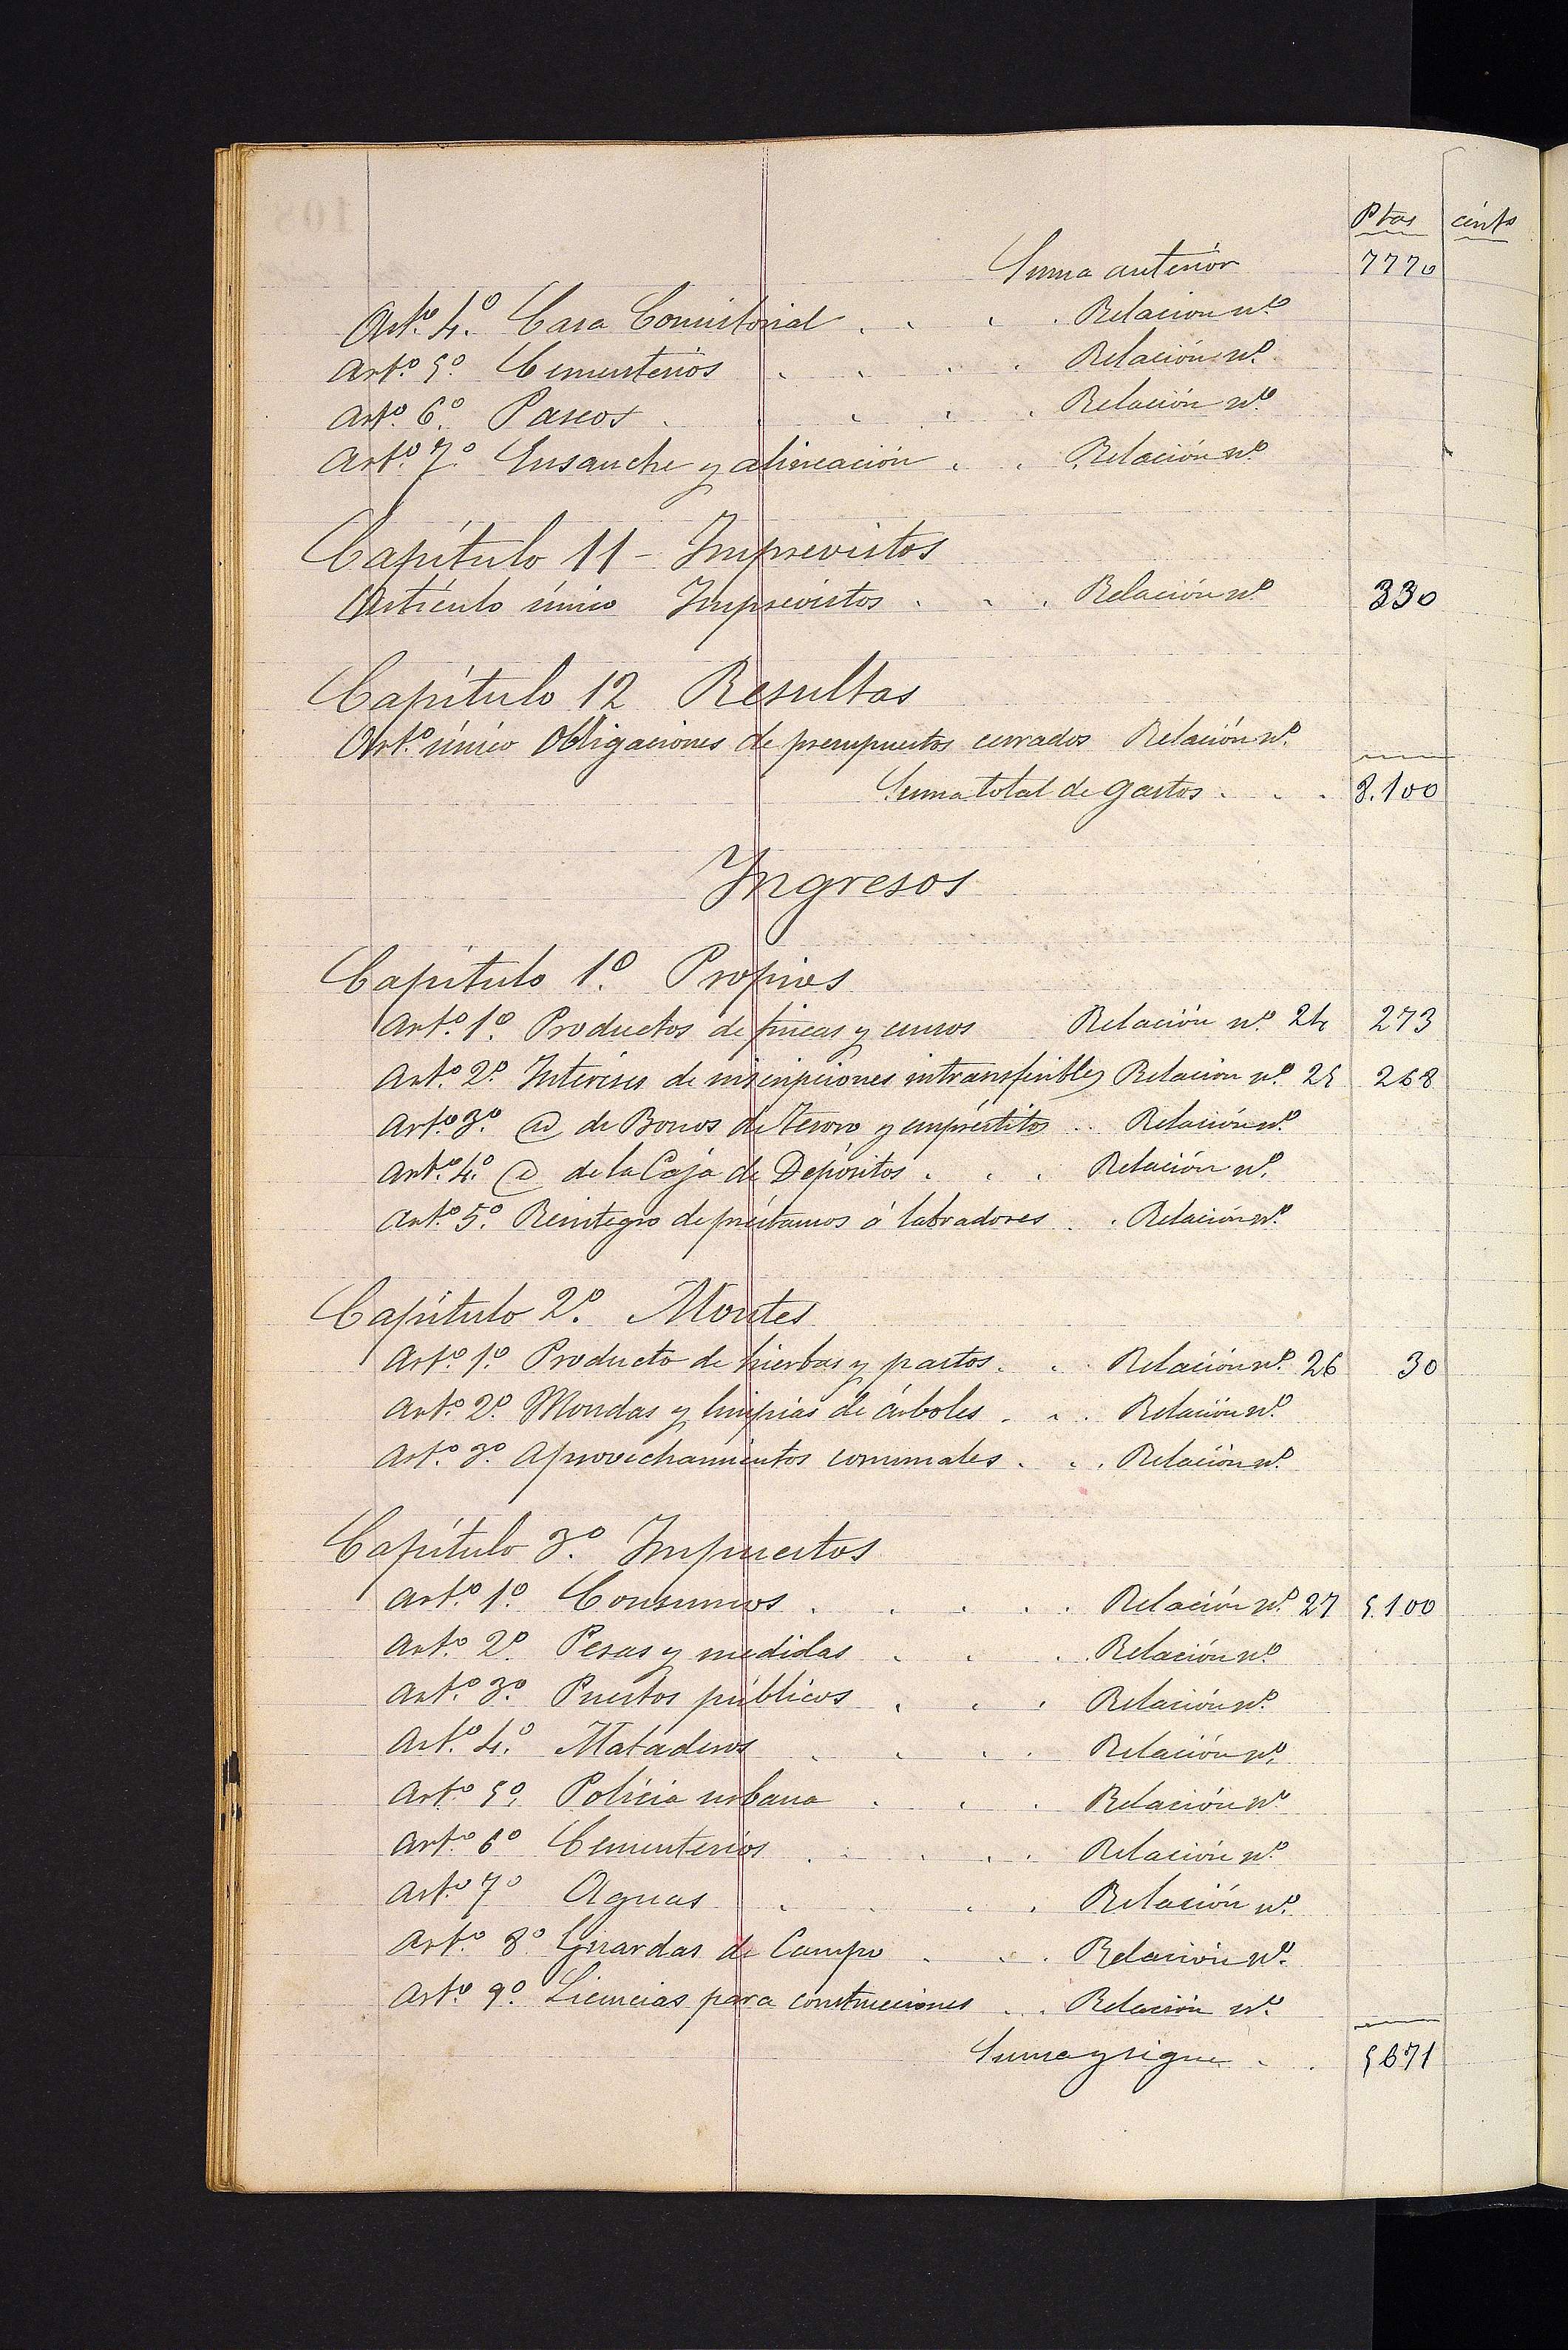 Ptas cénts
Suma anterior 7770
Artº 4º Casa Consistorial . . . . Relación nº
Artº 5º Cementerios . . . . Relación nº
Artº 6º Paseos . . . . . Relación nº
Artº 7º Ensanche y alineación . . Relación nº
Capítulo 11 - Imprevistos
Artículo único Imprevistos . . . Relación nº 330
Capítulo 12 Resultas
Artº único Obligaciones de presupuestos cerrados Relación nº
Suma total de gastos . . . 8.100
Ingresos
Capítulo 1º Propios
Artº 1º Productos de fincas y censos Relación nº 24 273
Artº 2º Intereses de inscripciones intransferibles Relación nº 25 268
Artº 3º @ de Bonos del Tesoro y empréstitos .. Relación nº
Artº 4º @ de la Caja de Depósitos . . . Relación nº
Artº 5º Reintegro de préstamos á labradores . . Relación nº
Capítulo 2º Montes
Artº 1º Producto de hierbas y pastos . . . Relación nº 26 30
Artº 2º Mondas y limpias de árboles . . . Relación nº
Artº 3º Aprovechamientos comunales . . . Relación nº
Capítulo 3º Impuestos
Artº 1º Consumos . . . . . Relación nº 27 5.100
Artº 2º Pesas y medidas . . . Relación nº
Artº 3º Puestos públicos . . . Relación nº
Artº 4º Mataderos . . . . Relación nº
Artº 5º Policía urbana . . . Relación nº
Artº 6º Cementerios . . . . . Relación nº
Artº 7º Aguas . . . . Relación nº
Artº 8º Guardas de Campo . . . Relación nº
Artº 9º Licencias para construcciones . . . Relación nº
Suma y sigue . . 5671